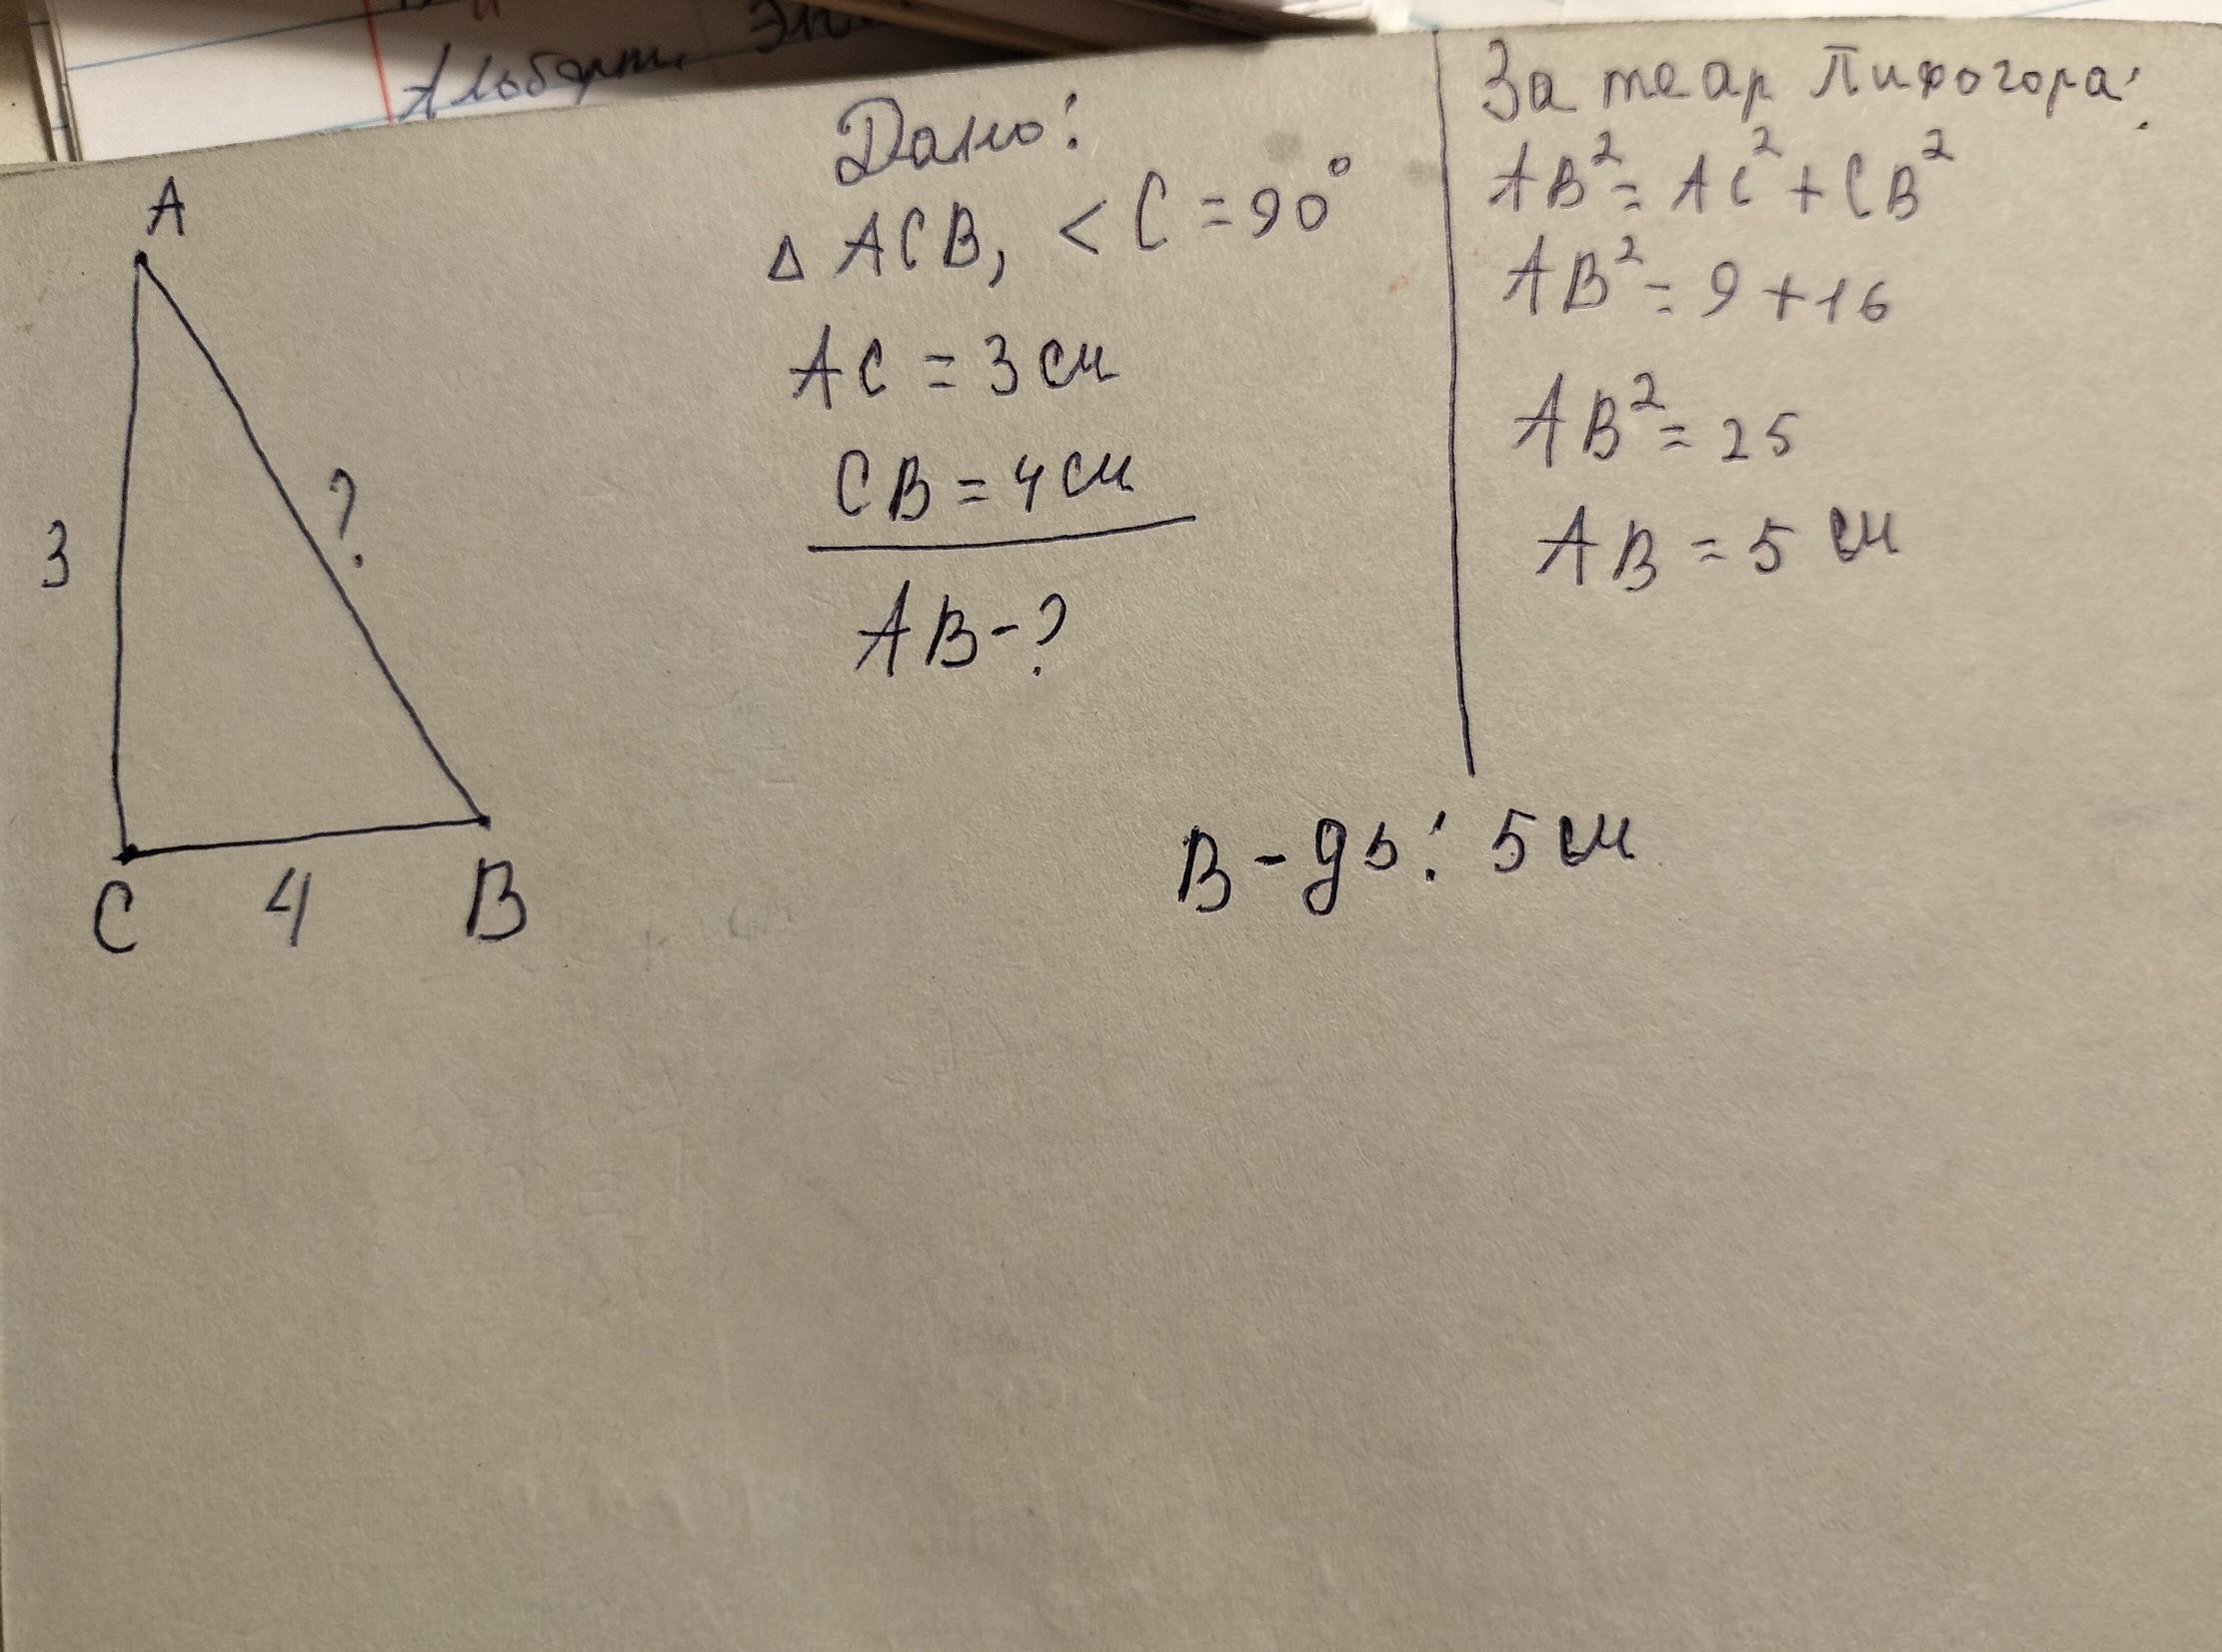 Альберт. Эн
A
3
?
C 4 B
Дано:
△ ACB, < C = 90°
AC = 3 см
CB = 4 см
AB - ?
За теар Пифогора:
AB² = AC² + CB²
AB² = 9 + 16
AB² = 25
AB = 5 см
В - дь: 5 см